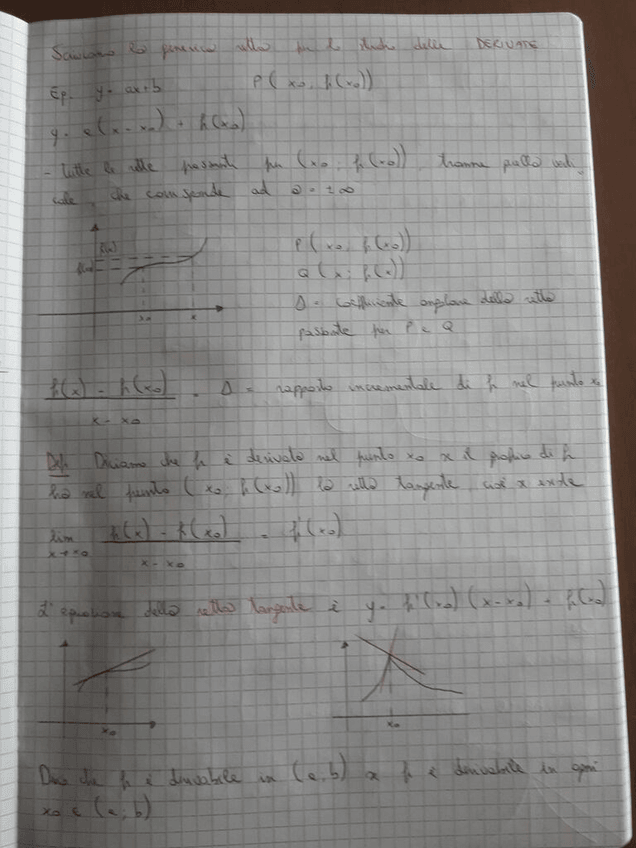 Scriviamo la generica retta per lo studio delle DERIVATE
Ep. y = ax+b P(x0, f(x0))
y = a(x-x0) + f(x0)
- tutte le rette passanti per (x0; f(x0)) tranne quella verti
cale, che corrisponde ad a = ±∞
f(x)
f(x0)
x0 x
P(x0, f(x0))
Q(x; f(x))
Δ = coefficiente angolare della retta
passante per P e Q
f(x) - f(x0) / x - x0 = Δ = rapporto incrementale di f nel punto x0
Def. Diciamo che f è derivabile nel punto x0 se il grafico di f
ha nel punto (x0, f(x0)) la retta tangente, cioè se esiste
lim x→x0 f(x) - f(x0) / x - x0 = f'(x0)
L'equazione della retta tangente è y = f'(x0)(x-x0) + f(x0)
x0 x0
Dico che f è derivabile in (a,b) se f è derivabile in ogni
x0 ∈ (a; b)